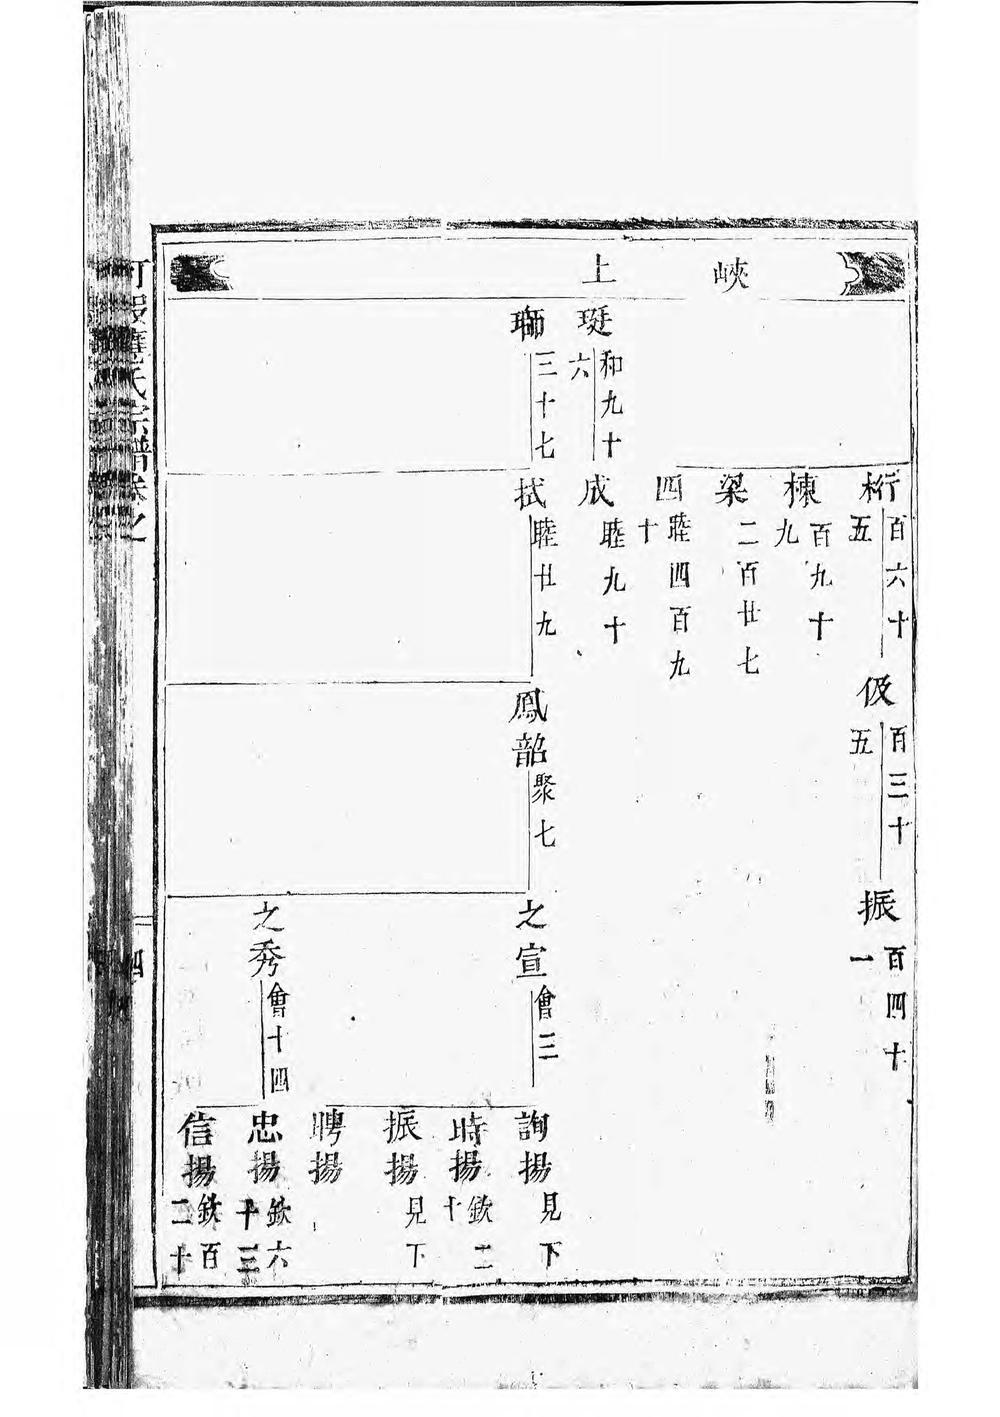 峽上
珽 和九十六
瑡 三十七
桁 百六十五
棟 百九十九
梁 二百廿七
四 睦四百九十
成 睦九十
拭 睦廿九
伋 百三十五
鳳韶 聚七
振 百四十一
之宣 會三
之秀 會十四
詢揚 見下
時揚 欽二十
振揚 見下
聘揚
忠揚 欽六十三
信揚 欽百二十
氏宗譜卷之
四